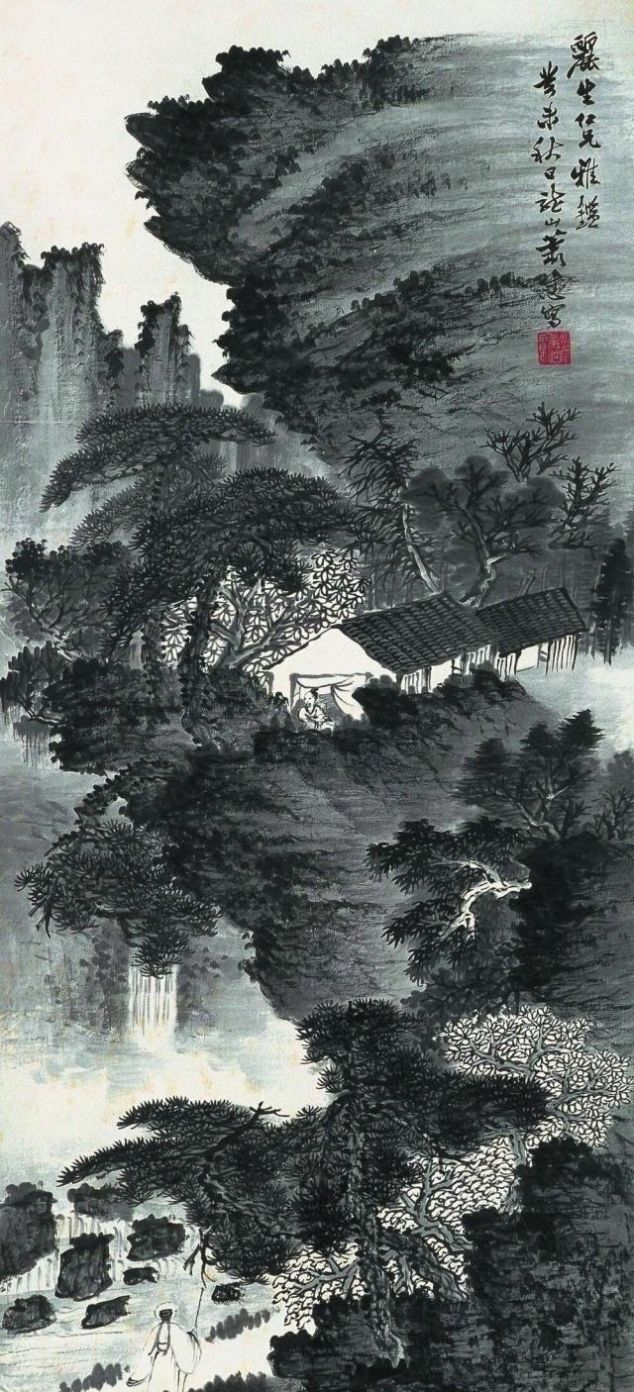 麗生仁兄雅鑑
癸未秋日龍山蕭愻寫